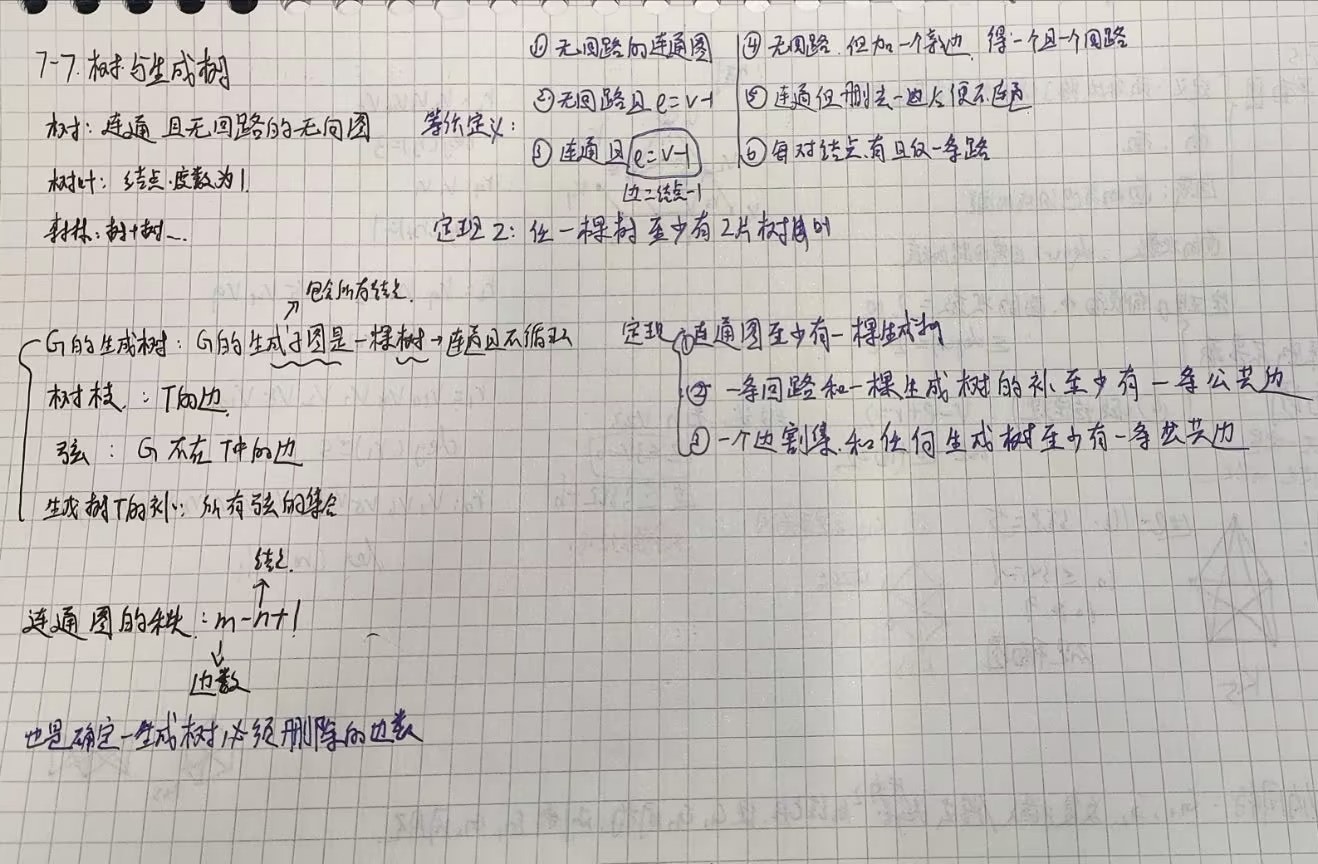 7-7. 树与生成树
树: 连通且无回路的无向图
树叶: 结点度数为1.
森林: 树+树…
等价定义:
① 无回路的连通图
② 无回路且 e=v-1
③ 连通且 e=v-1
边=结点-1
④ 无回路, 但加一个新边, 得一个且一个回路
⑤ 连通但删去一边后便不连通
⑥ 每对结点有且仅一条路
定理2: 任一棵树至少有2片树叶
包含所有结点.
G的生成树: G的生成子图是一棵树→连通且不循环
树枝: T的边
弦: G不在T中的边
生成树T的补: 所有弦的集合
定理 ①连通图至少有一棵生成树
② 一条回路和一棵生成树的补至少有一条公共边
③ 一个边割集和任何生成树至少有一条公共边
结点.
连通图的秩: m-n+1
边数
也是确定一生成树必须删除的边数